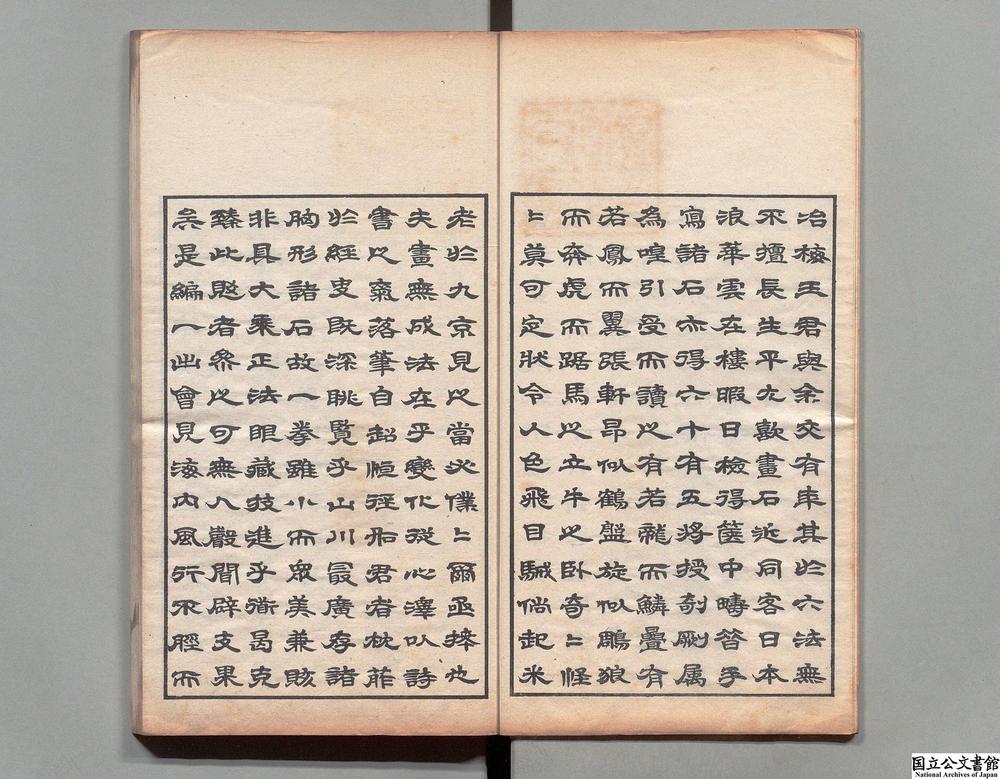 冶梅王君與余交有年其於六法無
不擅長生平尤歡畫石近同客日本
浪華雲在樓暇日檢得篋中疇昔手
寫諸石亦得六十有五將授剞劂属
為喤引受而讀之有若龍而鱗疊有
若鳳而翼張軒昂似鶴盤旋似鵰狼
而奔虎而踞馬之立牛之卧奇〻怪
〻莫可定狀令人色飛目駴倘起米
老於九京見之當必僕〻爾亟捧也
夫畫無成法在乎變化從心澤以詩
書之氣落筆自超恒徑如君者枕葄
於經史既深眺覽乎山川最廣存諸
胸形諸石故一拳雖小而眾美兼賅
非具大乘正法眼藏技進乎衜曷克
臻此者參之可無入聲聞辟支果
矣是編一出會見海内風行不脛而
国立公文書館
National Archives of Japan